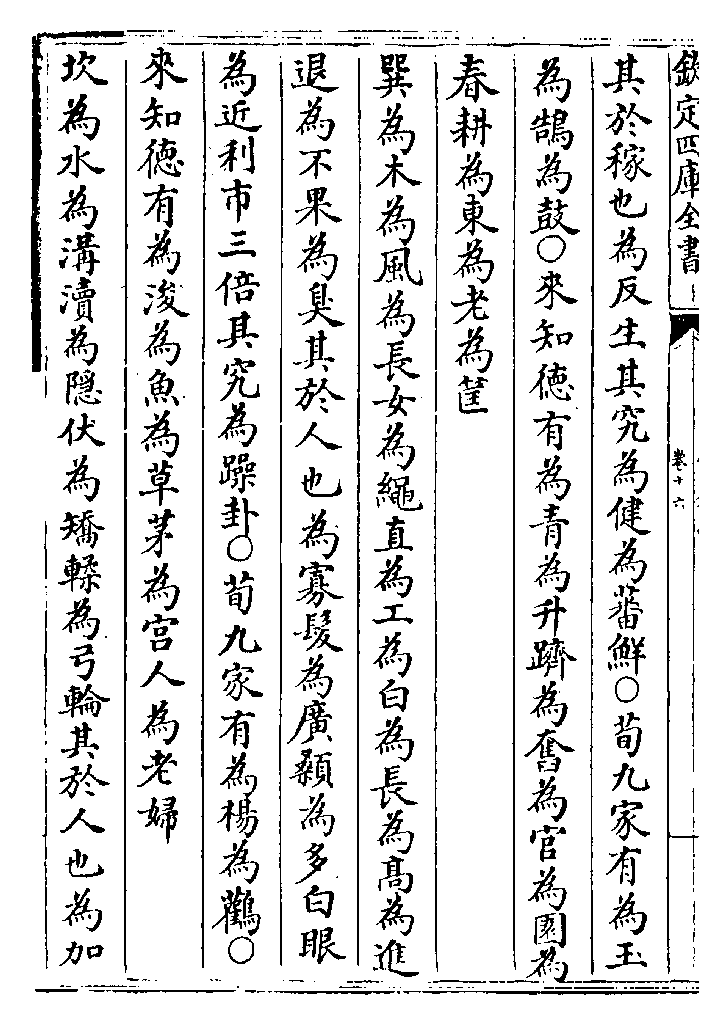 欽定四庫全書
卷十六
其於稼也為反生其究為健為蕃鮮○荀九家有為玉
為鵠為鼓○來知德有為青為升躋為奮為官為園為
春耕為東為老為筐
巽為木為風為長女為繩直為工為白為長為高為進
退為不果為臭其於人也為寡髮為廣顙為多白眼
為近利市三倍其究為躁卦○荀九家有為楊為鸛○
來知德有為浚為魚為草茅為宮人為老婦
坎為水為溝瀆為隱伏為矯輮為弓輪其於人也為加